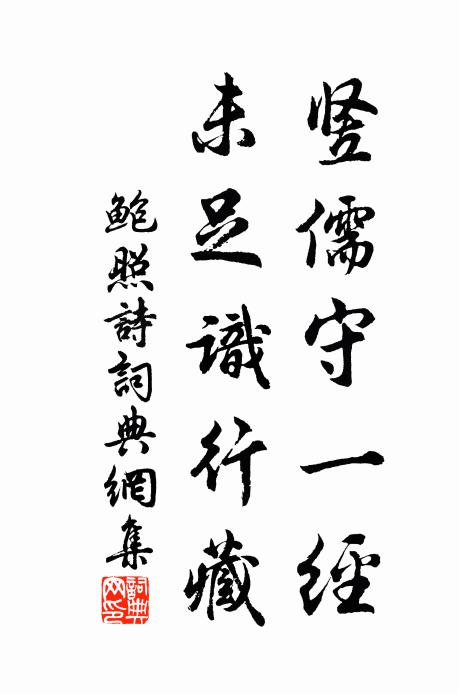 竖儒守一經
未足識行藏
鮑照詩詞典網集
詞典網印